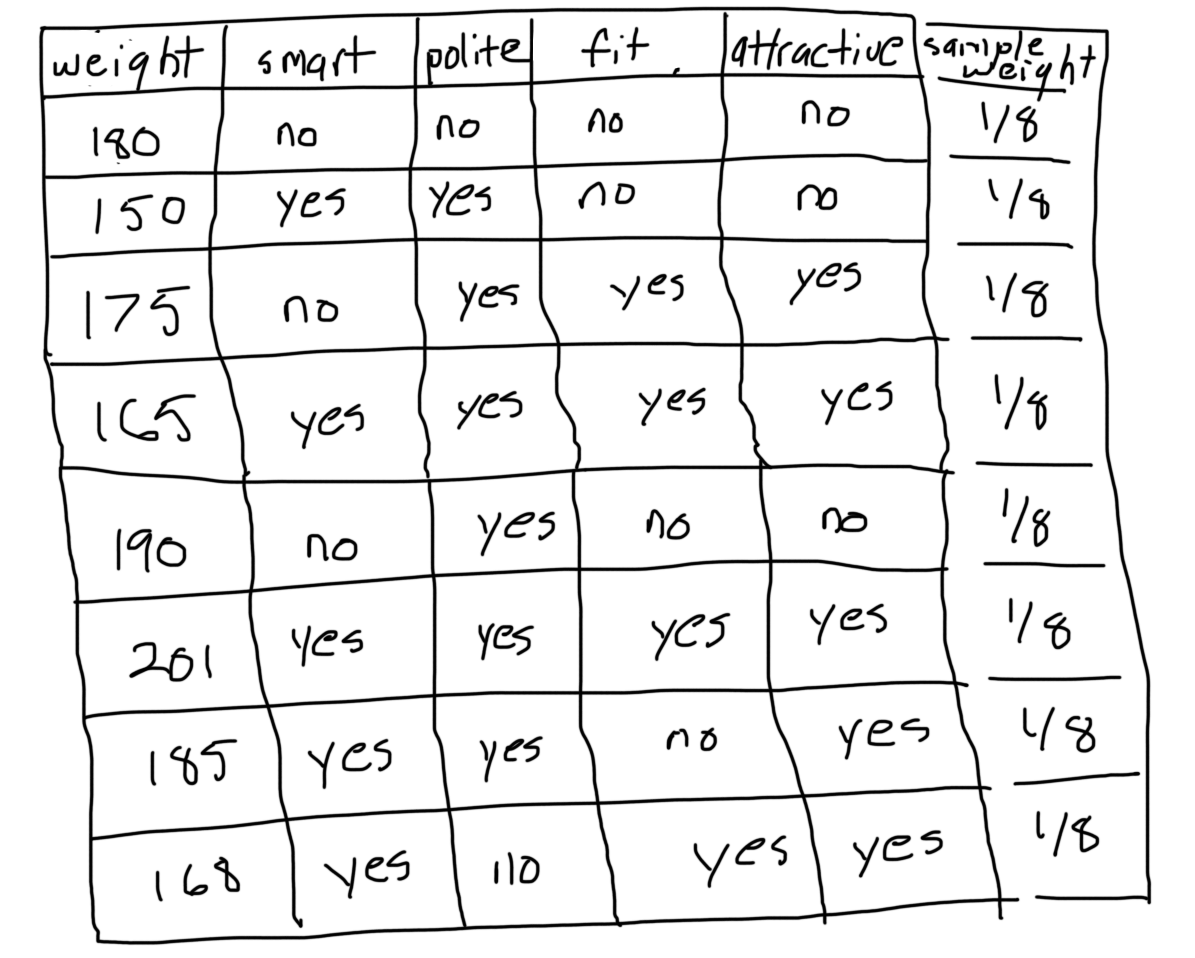 weight smart polite fit. attractive sample weight
180 no no no no 1/8
150 yes yes no no 1/8
175 no yes yes yes 1/8
165 yes yes yes yes 1/8
190 no yes no no 1/8
201 yes yes yes yes 1/8
185 yes yes no yes 1/8
168 yes no yes yes 1/8